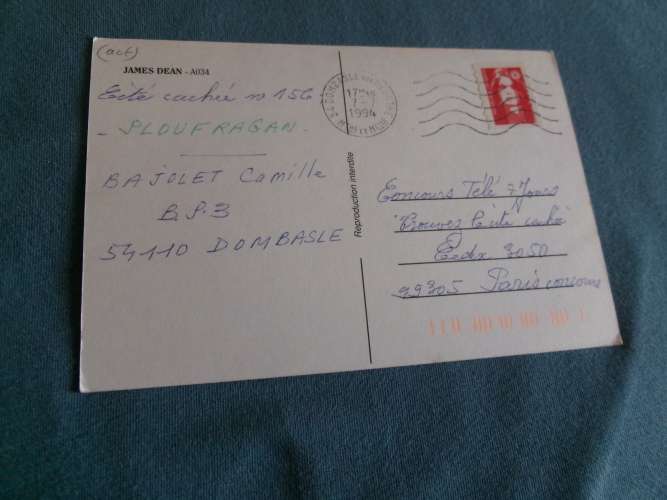 (act)
JAMES DEAN - A034
Cité cachée n° 156
- PLOUFRAGAN -
BAJOLET Camille
B.P.3
54110 DOMBASLE
Reproduction interdite
1994
Concours Télé 7 Jours
"Trouvez la cité cachée"
Cedex 3050
99305 Paris concours